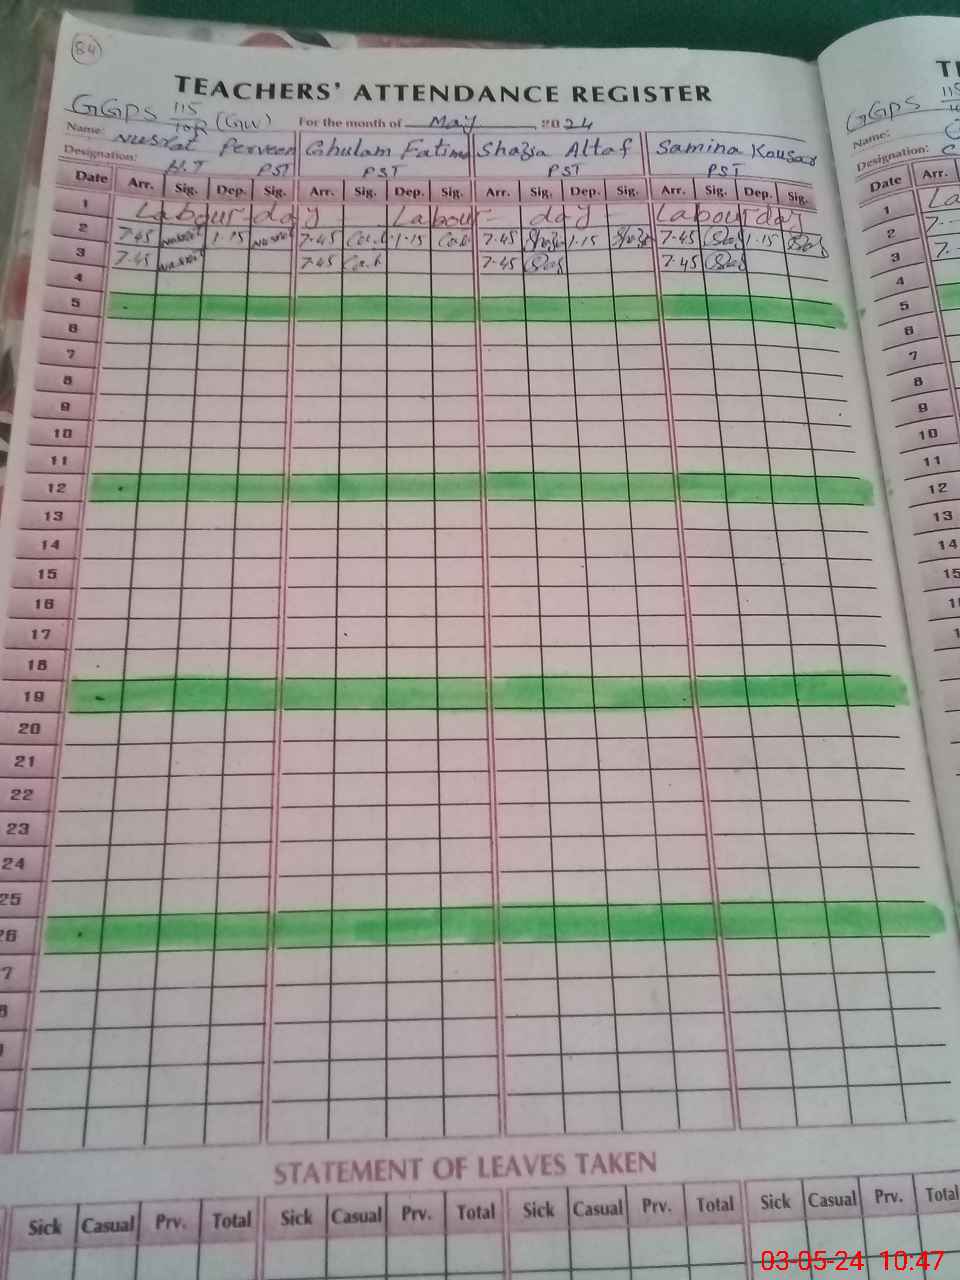 84
TEACHERS' ATTENDANCE REGISTER
GGPS 115/10R (GW) For the month of May 2024
Name: Nusrat Perveen Ghulam Fatima Shazia Altaf Samina Kousar
Designation: H.T PST PST PST PST
Date Arr. Sig. Dep. Sig. Arr. Sig. Dep. Sig. Arr. Sig. Dep. Sig. Arr. Sig. Dep. Sig.
1 Labour day Labour day Labour day
2 7.45 Nusrat 1.15 Nusrat 7.45 1.15 7.45 1.15 7.45 1.15
3 7.45 Nusrat 7.45 7.45 7.45
4
5
6
7
8
9
10
11
12
13
14
15
16
17
18
19
20
21
22
23
24
25
26
7
8
STATEMENT OF LEAVES TAKEN
Sick Casual Prv. Total Sick Casual Prv. Total Sick Casual Prv. Total Sick Casual Prv. Total
GGPS 115
Name:
Designation:
Date Arr.
1 La
2 7.
3 7.
4
5
6
7
8
9
10
11
12
13
14
15
03-05-24 10:47